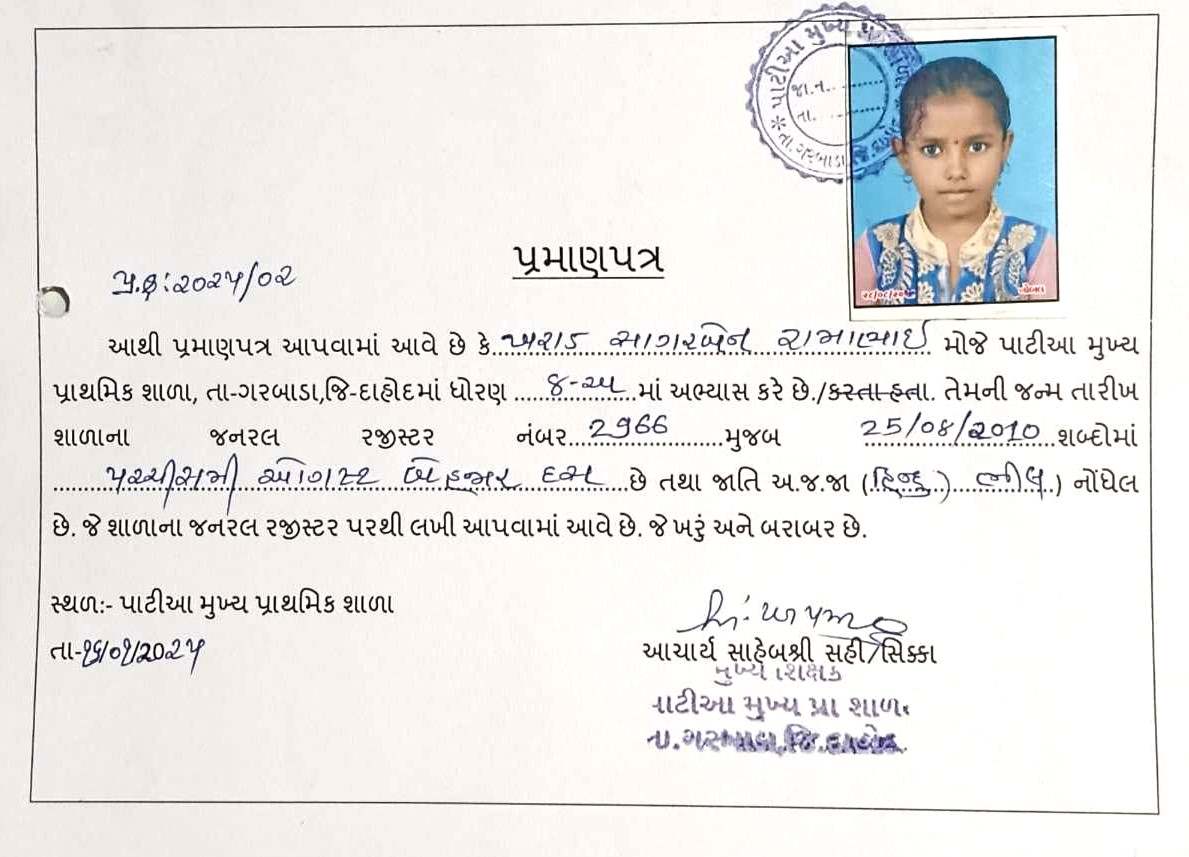 પાટીઆ મુખ્ય
જા.ન.
તા.
તા.ગરબાડા,જિ.દાહોદ
પ્રમાણપત્ર
પ્ર.ક્ર:૨૦૨૫/૦૨
આથી પ્રમાણપત્ર આપવામાં આવે છે કે ખરાડ સાગરબેન રામાભાઈ મોજે પાટીઆ મુખ્ય
પ્રાથમિક શાળા, તા-ગરબાડા,જિ-દાહોદમાં ધોરણ ૪-અ માં અભ્યાસ કરે છે./કરતા હતા. તેમની જન્મ તારીખ
શાળાના જનરલ રજીસ્ટર નંબર 2966 મુજબ 25/08/2010 શબ્દોમાં
પચ્ચીસમી ઓગસ્ટ બેહજાર દસ છે તથા જાતિ અ.જ.જા (હિન્દુ) ભીલ) નોંધેલ
છે. જે શાળાના જનરલ રજીસ્ટર પરથી લખી આપવામાં આવે છે. જે ખરું અને બરાબર છે.
સ્થળ:- પાટીઆ મુખ્ય પ્રાથમિક શાળા
તા-૧૬/૦૧/2૦2૫
આચાર્ય સાહેબશ્રી સહી/સિક્કા
મુખ્ય શિક્ષક
પાટીઆ મુખ્ય પ્રા શાળા
તા.ગરબાડા,જિ.દાહોદ